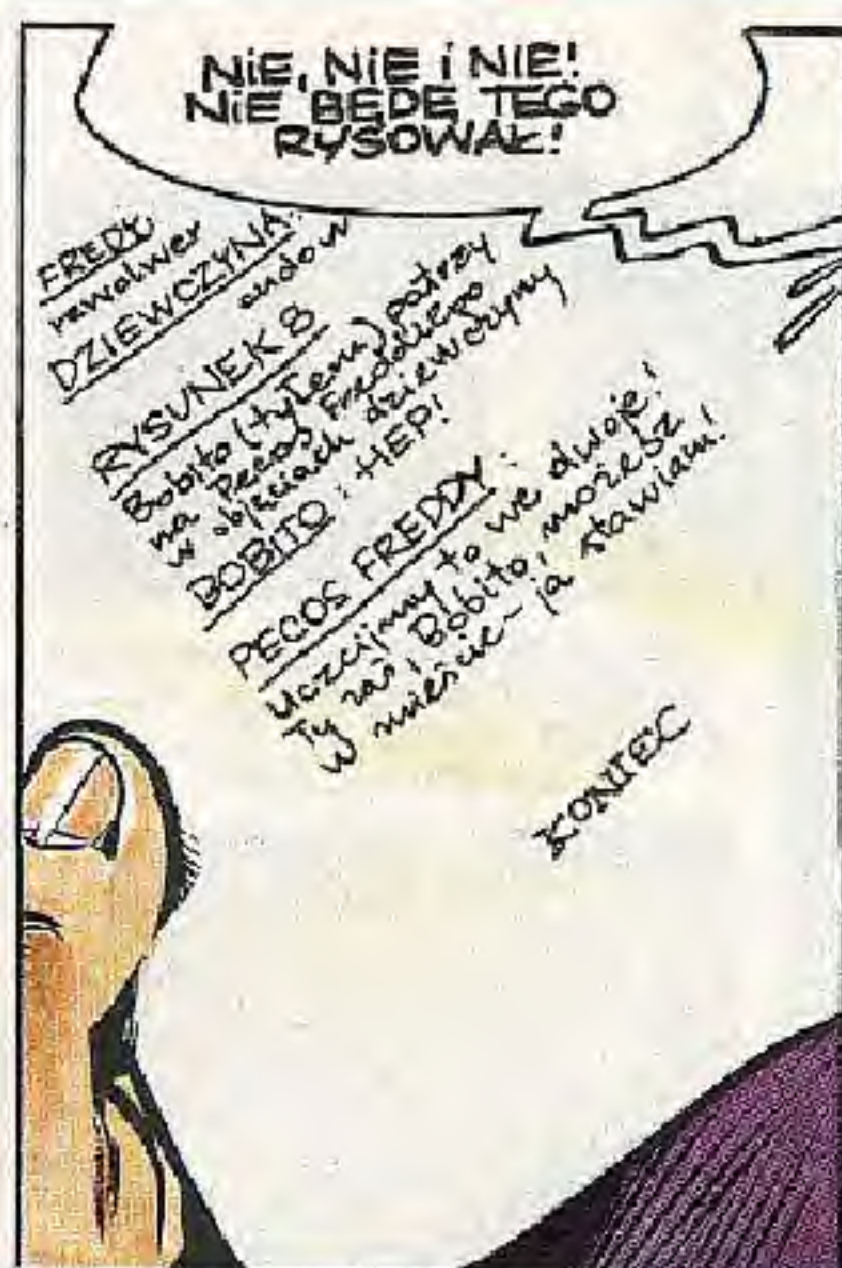 NiE, NiE i NiE!
NiE BĘDĘ TEGO
RYSOWAŁ!
FREDY
rewolwer
DZIEWCZYNA:
RYSUNEK 8
Bobito (tyłem) patrzy
na Pecos Freddiego
w objęciach dziewczyny
BOBITO: HEP!
PECOS FREDDY:
Uczcijmy to we dwoje!
Ty zaś, Bobito, możesz
w mieście - ja stawiam!
KONIEC